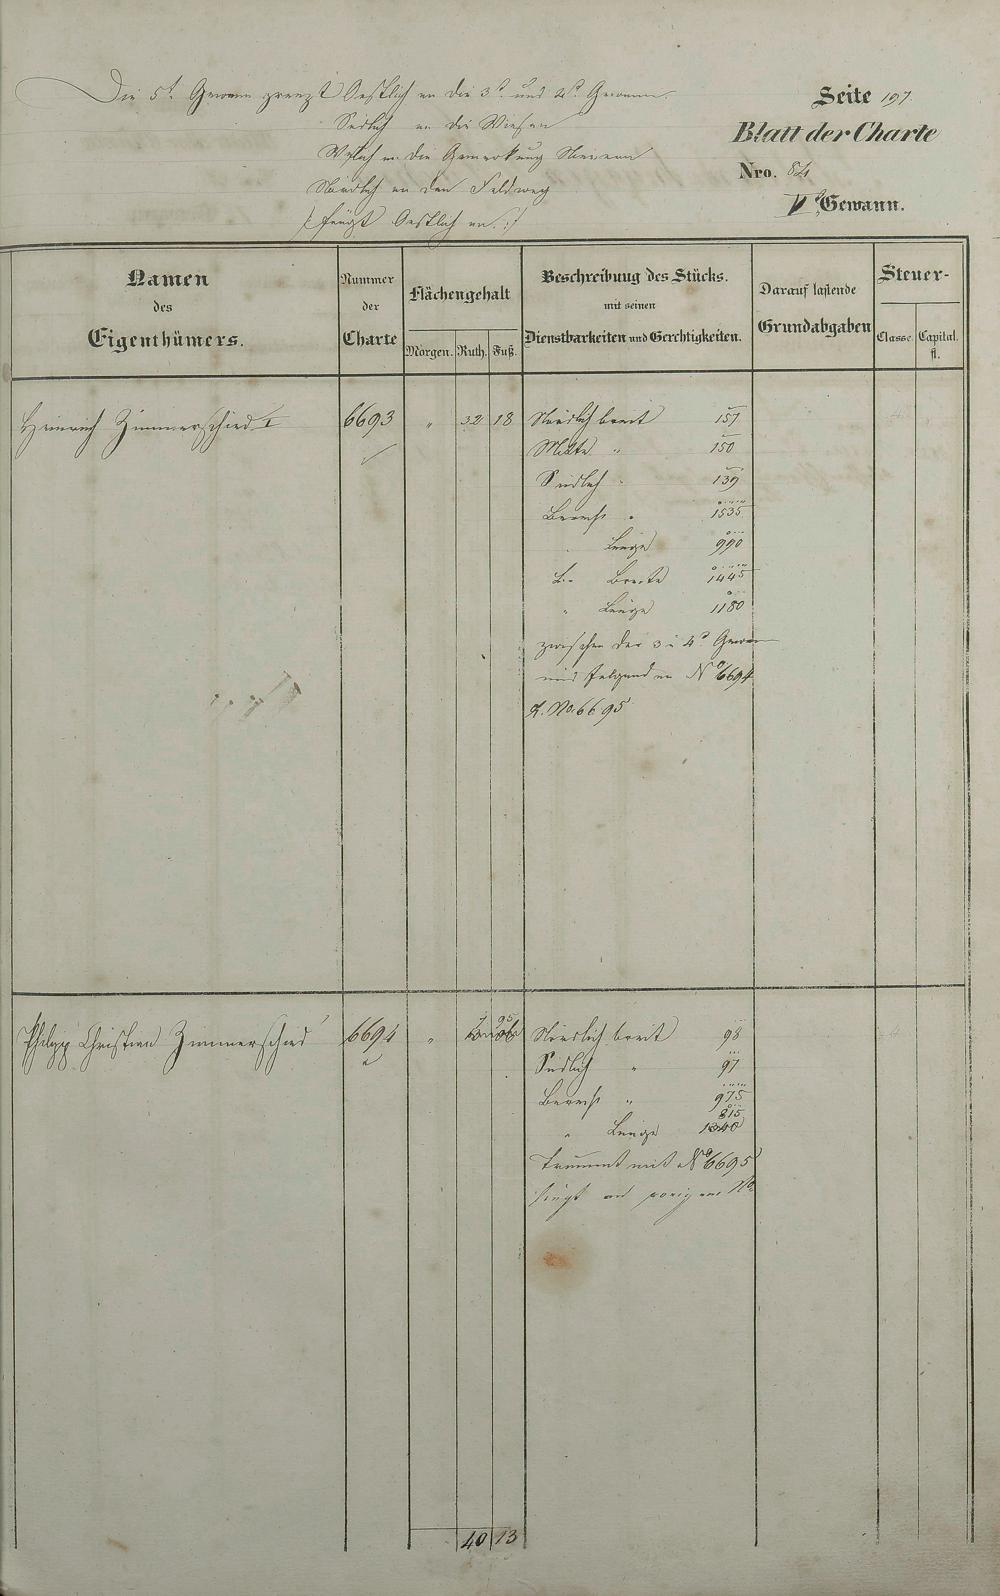 Die 5t. Gewann grenzt Oestlich an die 3t. und 4t. Gewann.
Südlich an die Wiesen
Westlich an die Gemarkung
Nördlich an den Feldweg
/: fängt Oestlich an. :/
Seite 197.
Blatt der Charte
Nro. 84
V Gewann.
Namen
des
Eigenthümers.
Nummer
der
Charte
Flächengehalt
Morgen. Ruth. Fuß.
Beschreibung des Stücks.
mit seinen
Dienstbarkeiten und Gerechtigkeiten.
Darauf lastende
Grundabgaben
Steuer-
Classe. Capital.
fl.
Heinrich Zimmerschied I 6693 " 32 18 Nördlich breit 157
Mitte " 150
Südlich " 139
Berecht " 1535
Länge 990
Breite 1445
" Länge 1180
zwischen der 3 u 4t Gewann
und folgenden No 6694
u. No. 6695
Philipp Christian Zimmerschied 6694 " 7 95 Nördlich breit 98
Südlich " 97
Berecht " 975
815
" Länge 1340
Trümmt mit No 6695
fängt an vorigem No.
40 13